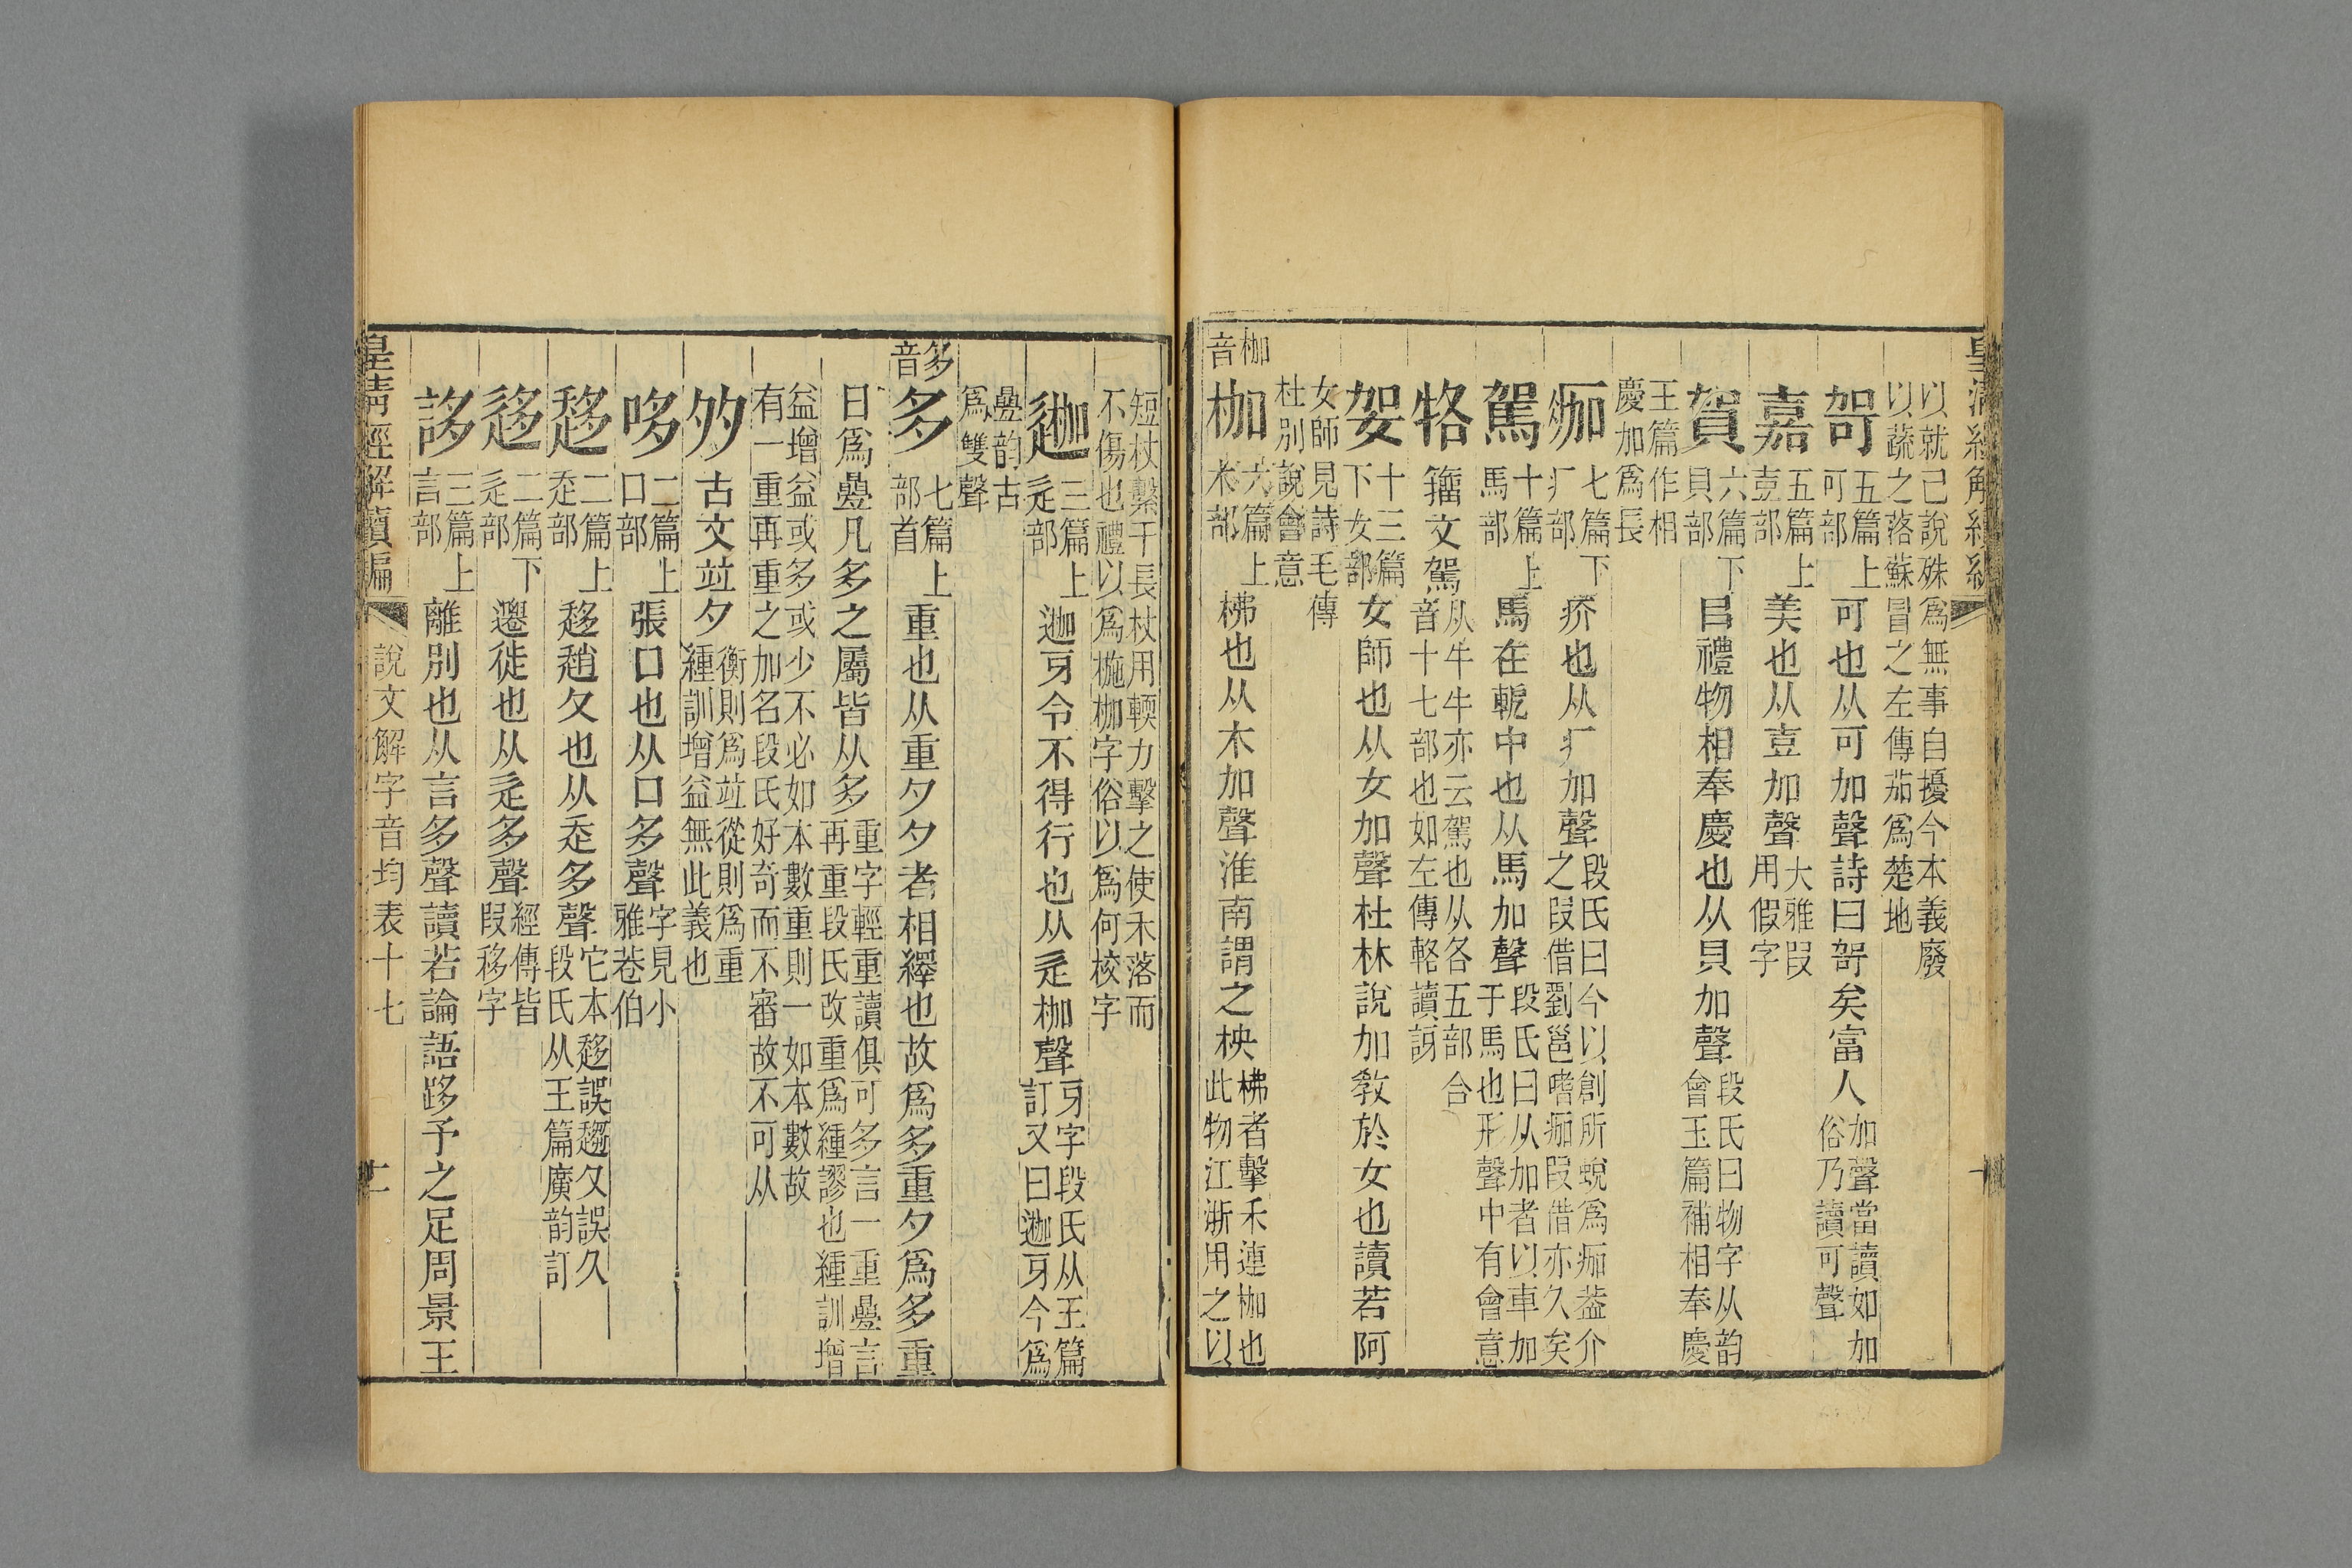 皇清經解續編
以就己說殊爲無事自擾今本義廢
以蔬之落蘇冒之左傳茄爲楚地
哿五篇上可部可也从可加聲詩曰哿矣富人加聲當讀如加俗乃讀可聲
嘉五篇上壴部美也从壴加聲大雅叚用假字
賀六篇下貝部㠯禮物相奉慶也从貝加聲段氏曰物字从韵會玉篇補相奉慶
玉篇作相慶加爲長
痂七篇下疒部疥也从疒加聲段氏曰今以創所蛻爲痂葢介之叚借劉邕嗜痂叚借亦久矣
駕十篇上馬部馬在軛中也从馬加聲段氏曰从加者以車加于馬也形聲中有會意
㸵籒文駕从牛牛亦云駕也从各五部合音十七部也如左傳輅讀訝
妿十三篇下女部女師也从女加聲杜林說加敎於女也讀若阿
女師見詩毛傳
杜別說會意
枷音
枷六篇上木部柫也从木加聲淮南謂之柍柫者擊禾連枷也此物江浙用之以
短杖繫于長杖用輭力擊之使禾落而
不傷也禮以爲椸枷字俗以爲何校字
迦三篇上辵部迦互令不得行也从辵枷聲互字段氏从玉篇訂又曰迦互今爲
疊韵古爲雙聲
多音
多七篇上部首重也从重夕夕者相繹也故爲多重夕爲多重
日爲疊凡多之屬皆从多重字輕重讀俱可多言一重疊言再重段氏改重爲緟謬也緟訓增
益增益或多或少不必如本數重則一如本數故
有一重再重之加名段氏好奇而不審故不可从
𡖇古文竝夕衡則爲竝從則爲重緟訓增益無此義也
哆二篇上口部張口也从口多聲字見小雅巷伯
趍二篇上走部趍趙夂也从走多聲它本趍誤趨夂誤久段氏从玉篇廣韵訂
迻二篇下辵部遷徙也从辵多聲經傳皆叚移字
誃三篇上言部離別也从言多聲讀若論語跢予之足周景王
皇清經解續編 說文解字音均表十七